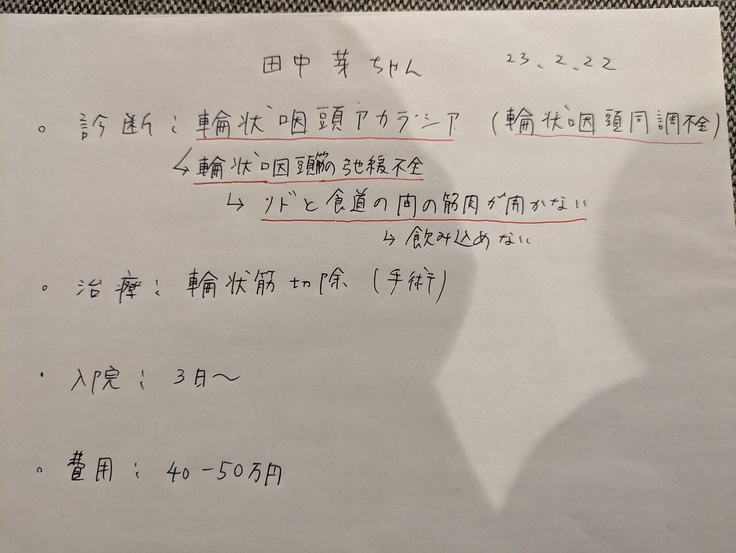 田中芽ちゃん 23.2.22
。診断：輪状咽頭アカラシア（輪状咽頭同調不全）
↳輪状咽頭筋の弛緩不全
↳ノドと食道の間の筋肉が開かない
↳飲み込めない
。治療：輪状筋切除（手術）
・入院：3日〜
。費用：40-50万円